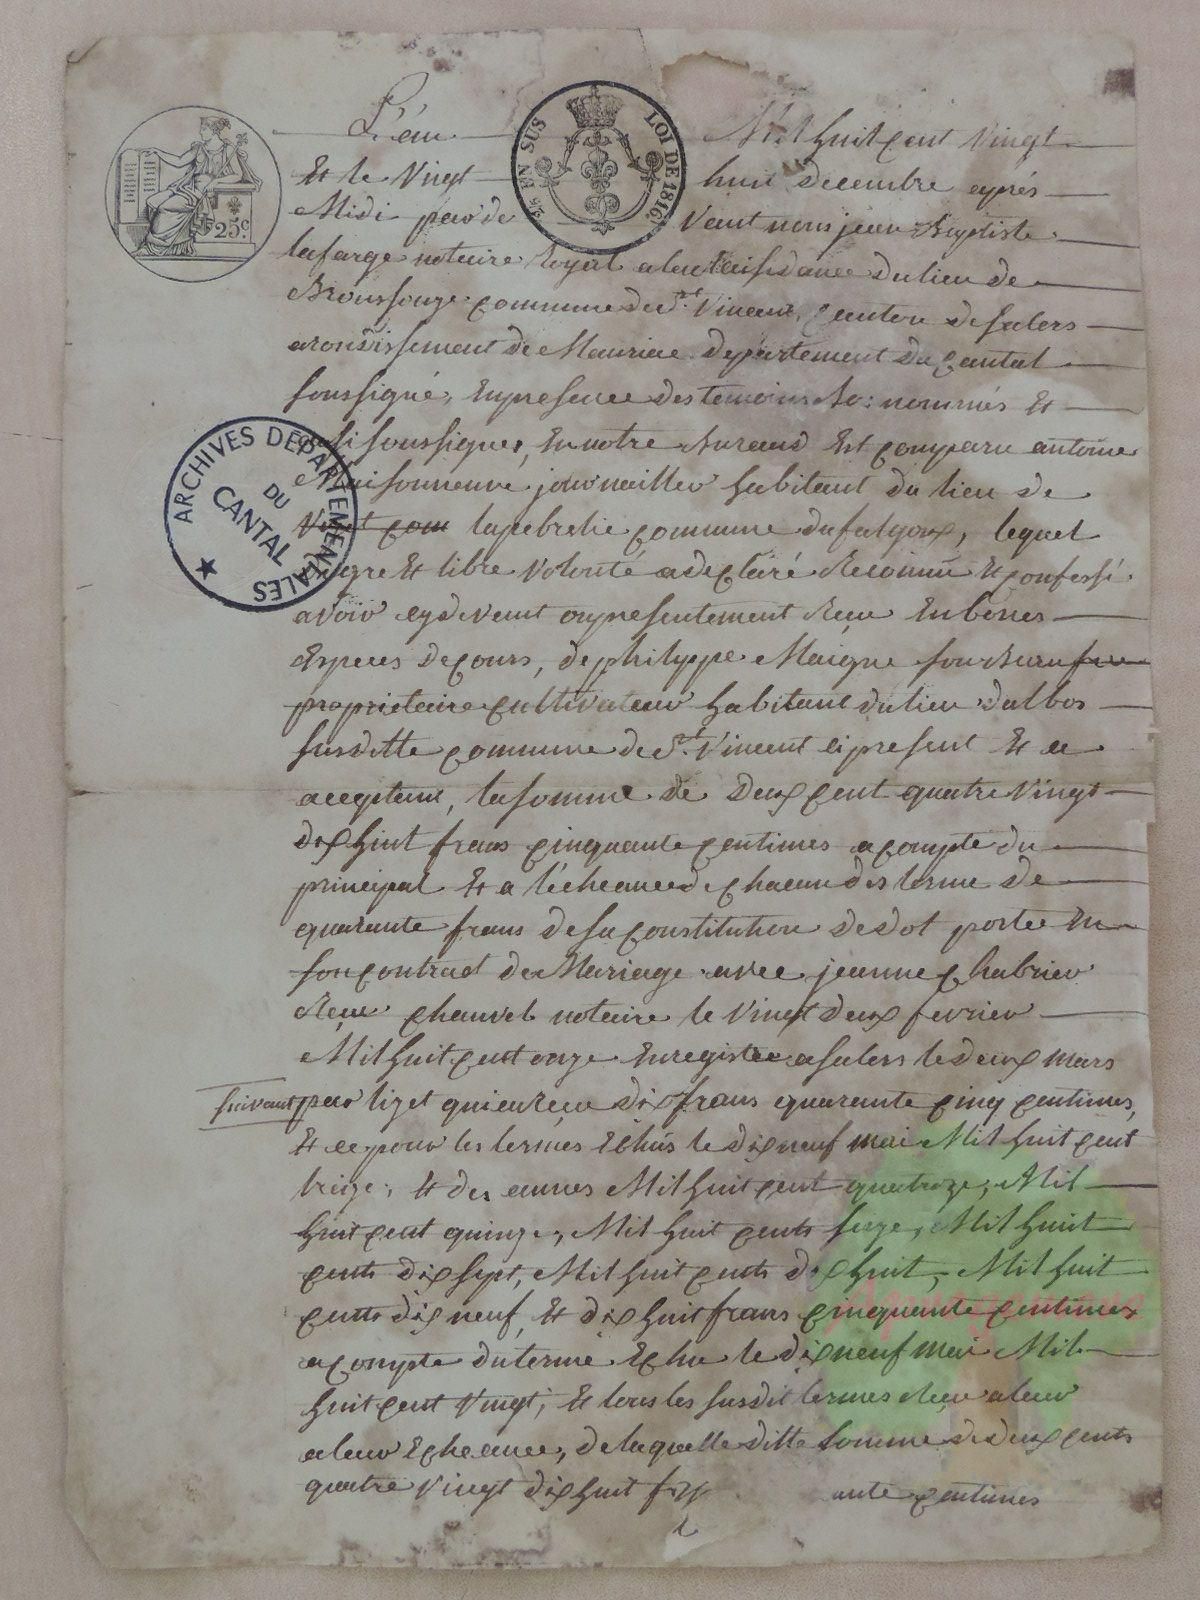 L'an Mil huit cent vingt
Et le vingt huit decembre aprés
Midi par de vant nous jean Baptiste
lafarge notaire Royal a la Residance du lieu de
Broussouze commune de St. Vincent, canton de salers
arondissement de Mauriac departement du cantal
soussigné, En presence des temoins Ba: nommés Et
aussi soussignes, En notre Bureaud Est comparu antoine
Maisonneuve journailler habitant du lieu de
lapebrelie commune du falgoux, lequel
de gre Et libre volonté a declaré Reconnu Et confessé
avoir cy devant ou presentement Recu En bonnes
Especes de cours, de philippe Maigne son Beau
propriétaire cultivateur habitant du lieu d'albos
susditte commune de St. Vincent ci present Et ce
acceptant, la somme de deux cent quatre vingt
dix huit frans cinquante centimes a compte du
principal Et a l'écheance de chacun des terme de
quarante frans de sa constitution de dot portée En
son contrad de Mariage avec jeanne chabrier
Recu chauvel notaire le vingt deux fevrier
Mil huit cent onze Enregistree a salers le deux mars
suivant par lizet qui eu Recu dix frans quarante cinq centimes,
Et ce pour les termes Echus le dix neuf mai Mil huit cent
treize, Et des annes Mil huit cent quatroze, Mil
huit cent quinze, Mil huit cents seize, Mil huit
cents dix sept, Mil huit cents dix huit, Mil huit
cents dix neuf, Et dix huit frans cinquante centimes
a compte du terme Echu le dix neuf mai Mil
huit cent vingt, Et tous les susdit termes Recu a leur
a leur Echeance, de laquelle ditte somme de deux cents
quatre vingt dix huit ante centimes
25c.
EN SUS LOI DE 1816
ARCHIVES DÉPARTEMENTALES
DU
CANTAL